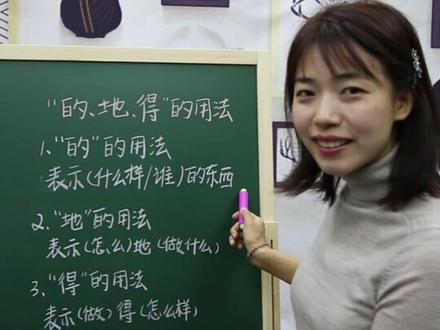 "的、地、得"的用法
1、"的"的用法
表示(什么样/谁)的东西
2、"地"的用法
表示(怎么)地(做什么)
3、"得"的用法
表示(做)得(怎么样)